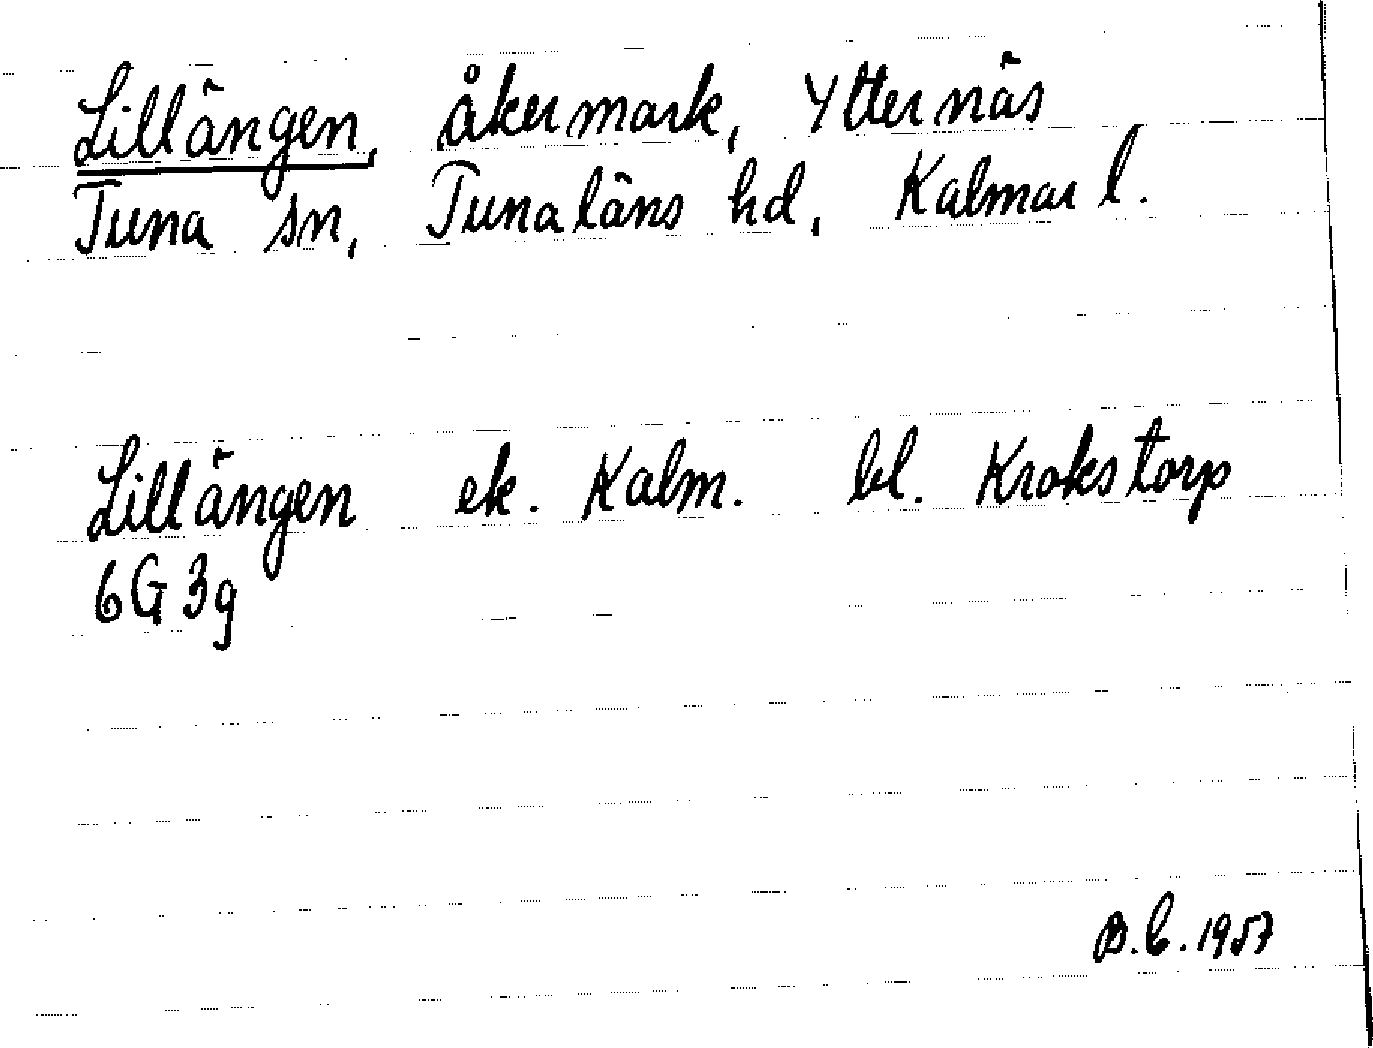 Lillängen, åkermark, Ytternäs
Tuna sn, Tunaläns hd, Kalmar l.
Lillängen ek. Kalm. bl. Krokstorp
6G 3g
B.C. 1957